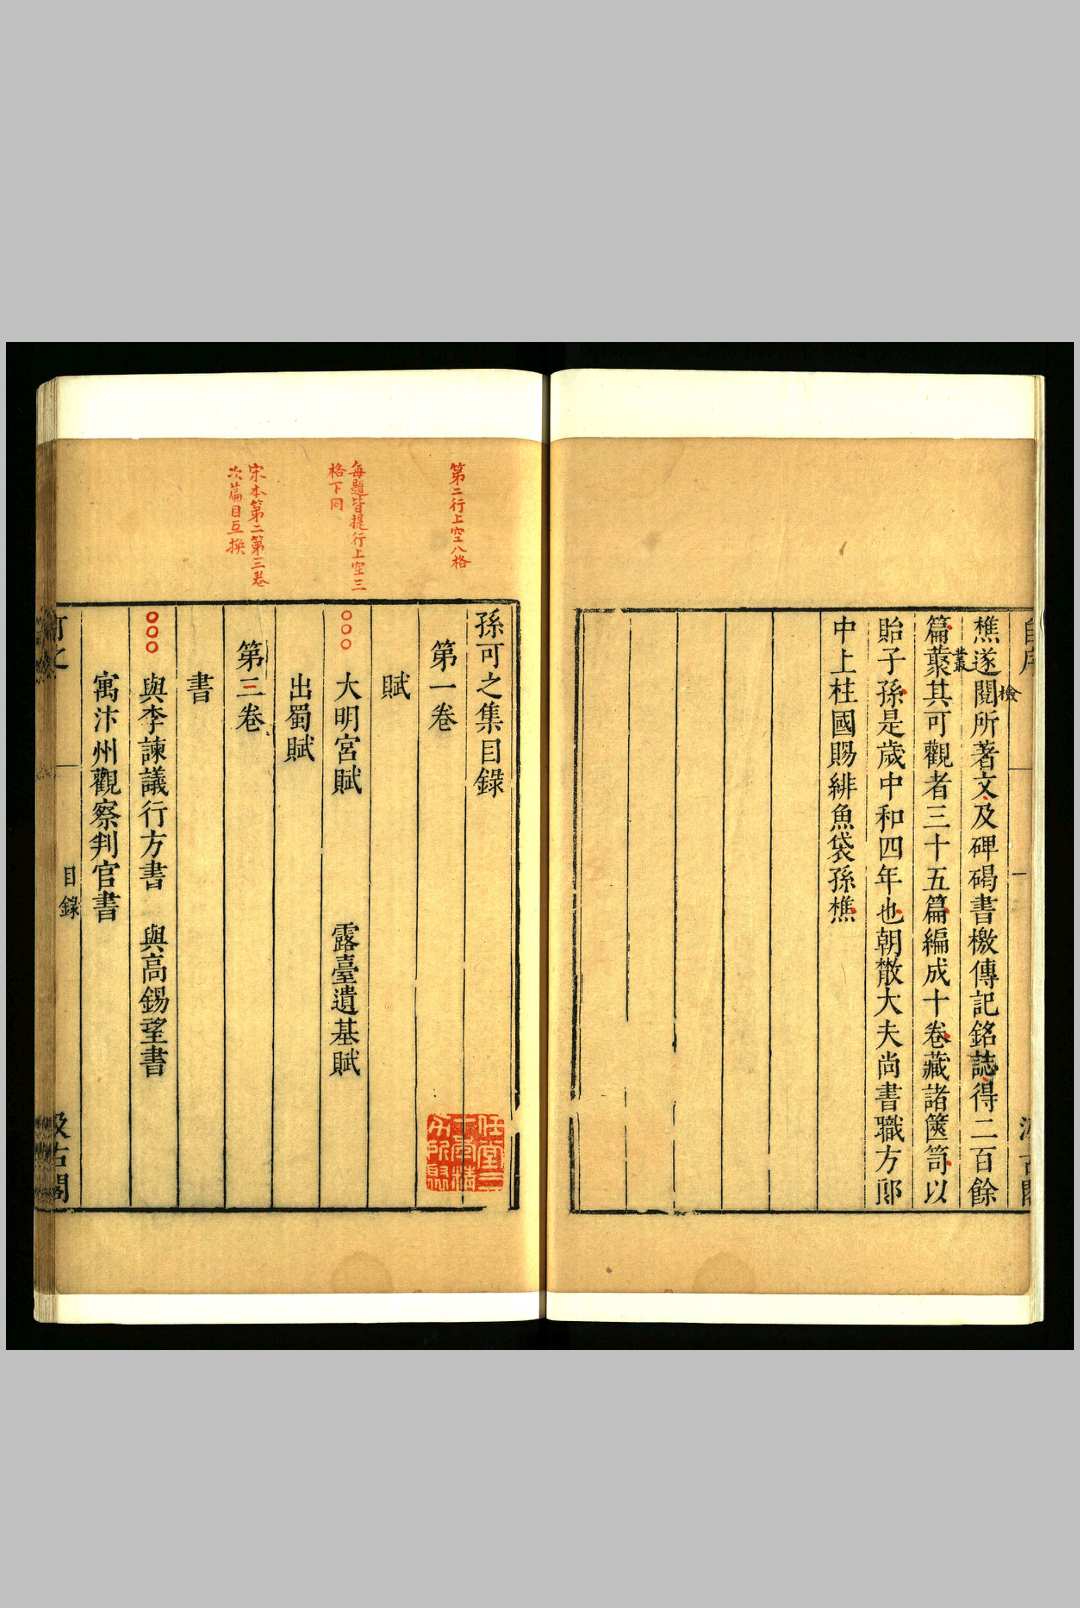 自序
樵遂閱所著文及碑碣書檄傳記銘誌得二百餘
檢
篇䕺其可觀者三十五篇編成十卷藏諸篋笥以
叢
貽子孫是歲中和四年也朝散大夫尚書職方郎
中上柱國賜緋魚袋孫樵
第二行上空八格
每題皆提行上空三
格下同
宋本第二第三卷
次篇目互換
孫可之集目錄
第一卷
賦
大明宮賦 露臺遺基賦
出蜀賦
第三卷
書
與李諫議行方書 與高錫望書
寓汴州觀察判官書
可之
目錄
汲古閣